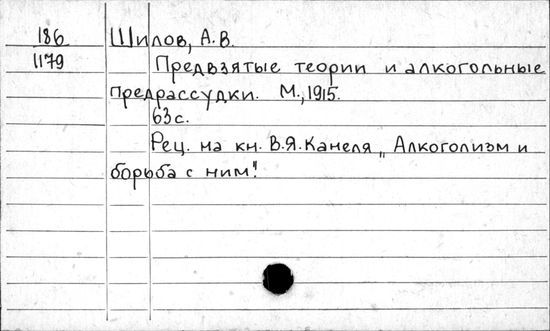 186 Шилов, А.В.
1179 Предвзятые теории и алкогольные
предрассудки. М., 1915.
63 с.
Рец. на кн. В.Я. Канеля „Алкоголизм и
борьба с ним".